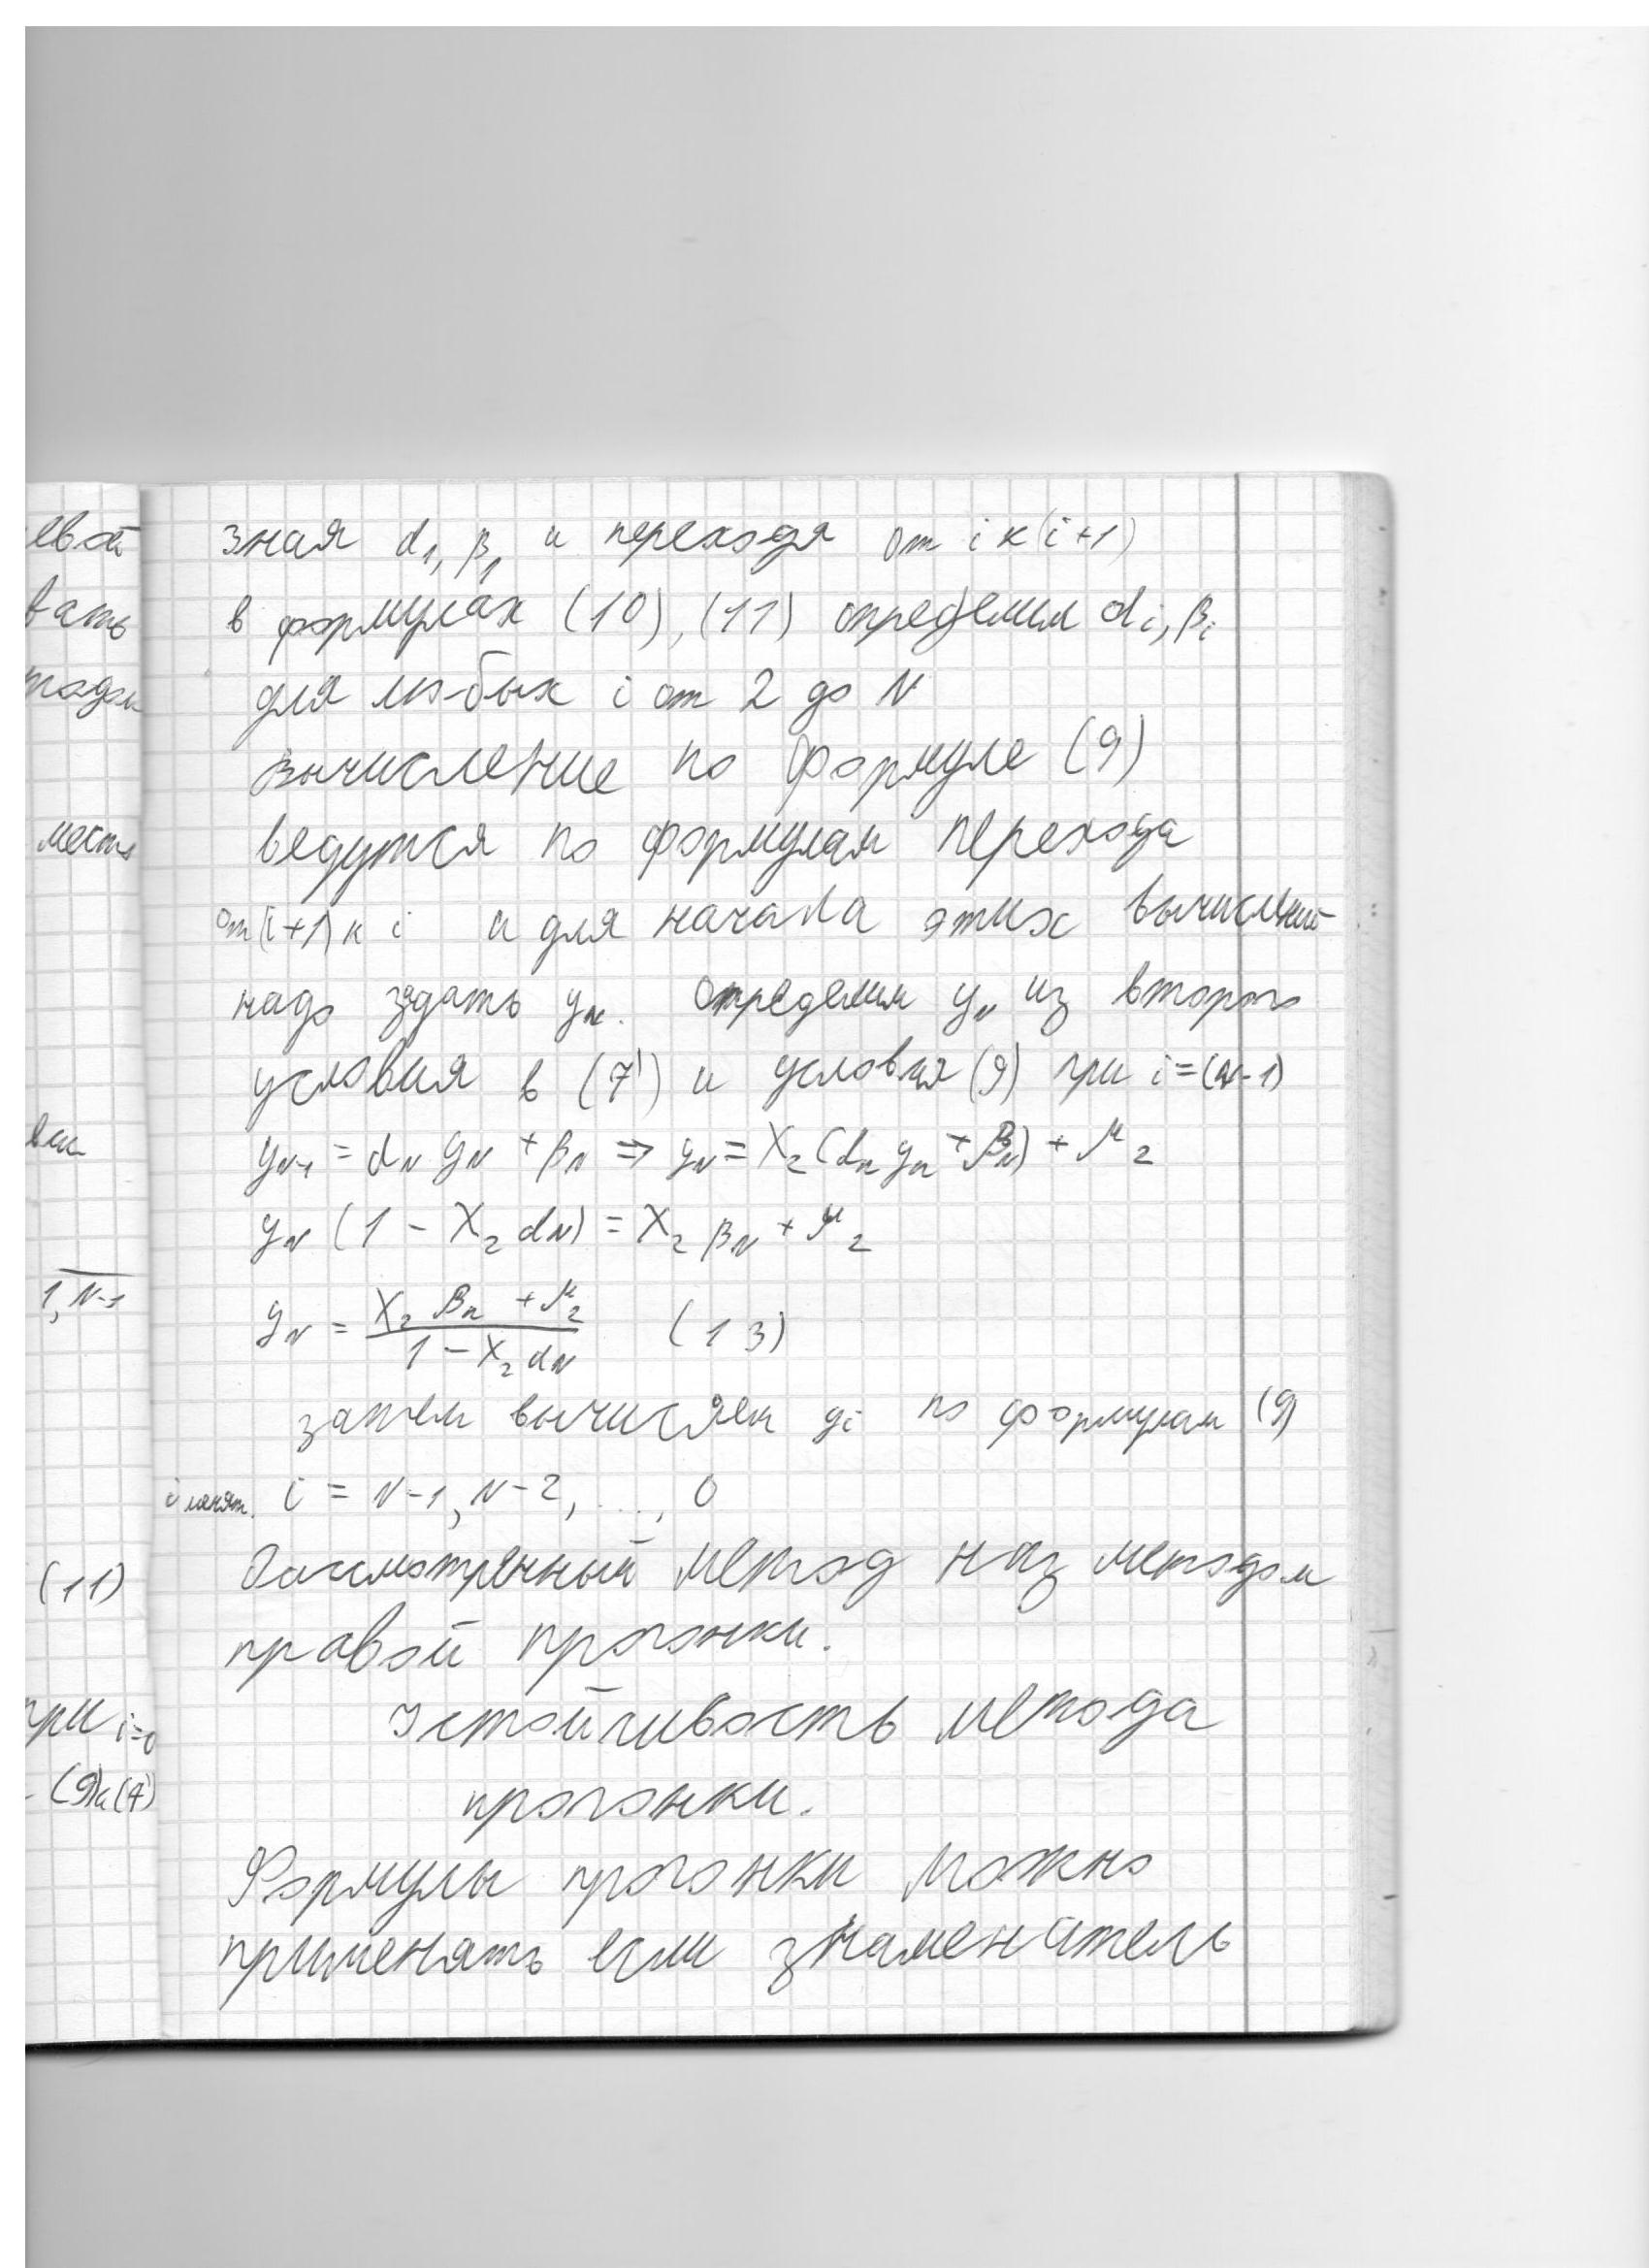 евой
вать
тодом
место
1, N-1
(11)
при i=0
(9)и(7)
зная α₁, β₁ и переходя от i к (i+1)
в формулах (10), (11) определим αi, βi
для любых i от 2 до N
Вычисление по формуле (9)
ведутся по формулам перехода
от (i+1) к i и для начала этих вычислений
надо задать yN. Определим yN из второго
условия в (7') и условия (9) при i=(N-1)
yN-1 = αN yN + βN ⇒ yN = X₂(αN yN + βN) + μ₂
yN (1 - X₂ αN) = X₂ βN + μ₂
yN = (X₂ βN + μ₂) / (1 - X₂ αN) (13)
затем вычисляем yi по формулам (9)
i менят. i = N-1, N-2, ..., 0
Рассмотренный метод наз методом
правой прогонки.
Устойчивость метода
прогонки.
Формулы прогонки можно
применять если знаменатель